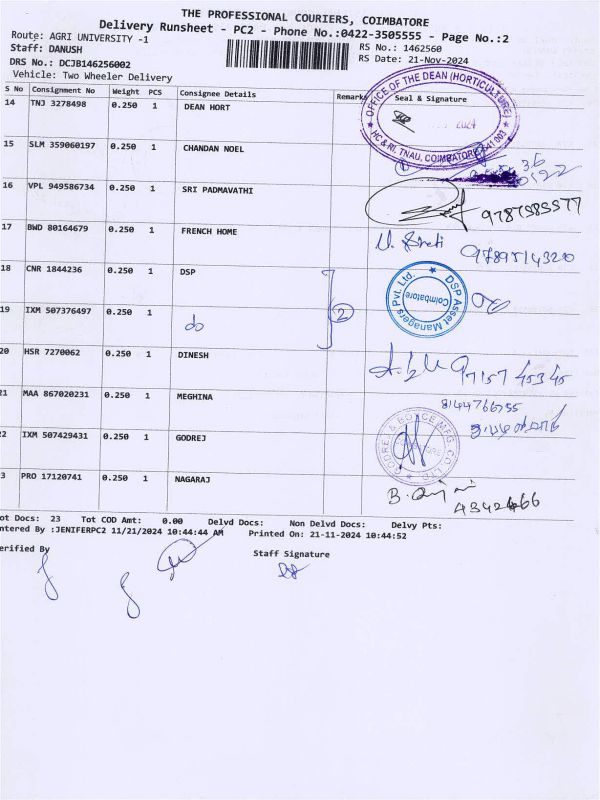 THE PROFESSIONAL COURIERS, COIMBATORE
Delivery Runsheet - PC2 - Phone No.:0422-3505555 - Page No.:2
Route: AGRI UNIVERSITY -1
RS No.: 1462560
Staff: DANUSH
RS Date: 21-Nov-2024
DRS No.: DCJB146256002
Vehicle: Two Wheeler Delivery
S No Consignment No Weight PCS Consignee Details Remarks Seal & Signature
14 TNJ 3278498 0.250 1 DEAN HORT
OFFICE OF THE DEAN (HORTICULTURE)
2024
HC & RI, TNAU, COIMBATORE-641 003
15 SLM 359060197 0.250 1 CHANDAN NOEL
16 VPL 949586734 0.250 1 SRI PADMAVATHI
17 BWD 80164679 0.250 1 FRENCH HOME
9789514320
18 CNR 1844236 0.250 1 DSP
DSP Asset Managers Pvt. Ltd.
Coimbatore
19 IXM 507376497 0.250 1 do
2
20 HSR 7270062 0.250 1 DINESH
97157 45345
21 MAA 867020231 0.250 1 MEGHINA
8144766755
22 IXM 507429431 0.250 1 GODREJ
GODREJ & BOYCE MFG. CO. LTD.
23 PRO 17120741 0.250 1 NAGARAJ
4342466
ot Docs: 23 Tot COD Amt: 0.00 Delvd Docs: Non Delvd Docs: Delvy Pts:
ntered By :JENIFERPC2 11/21/2024 10:44:44 AM Printed On: 21-11-2024 10:44:52
erified By Staff Signature